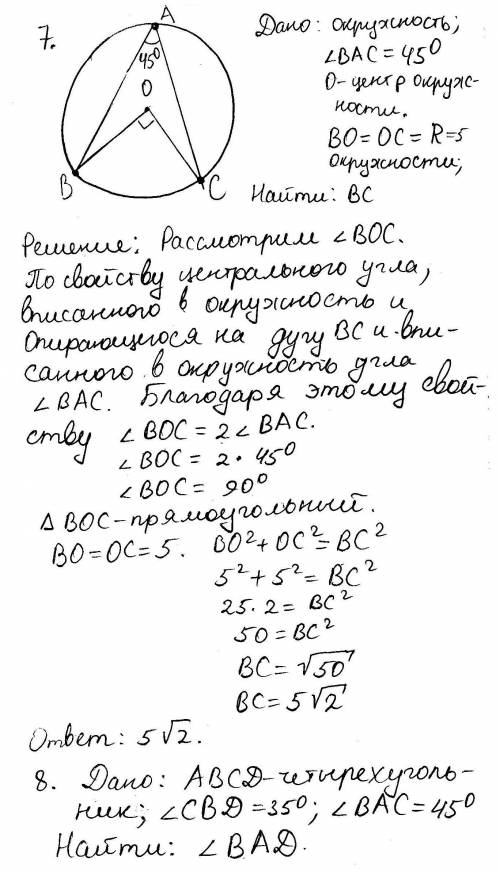 7.
A
45°
O
B
C
Дано: окружность;
∠BAC = 45°
O-центр окруж-
ности.
BO = OC = R=5
окружности;
Найти: BC
Решение: Рассмотрим ∠BOC.
По свойству центрального угла,
вписанного в окружность и
опирающегося на дугу BC и впи-
санного в окружность угла
∠BAC. Благодаря этому свой-
ству ∠BOC = 2∠BAC.
∠BOC = 2·45°
∠BOC = 90°
△BOC-прямоугольный.
BO=OC=5. BO²+OC²=BC²
5²+5²=BC²
25·2=BC²
50=BC²
BC=√50
BC=5√2
Ответ: 5√2.
8. Дано: ABCD-четырехуголь-
ник; ∠CBD=35°; ∠BAC=45°
Найти: ∠BAD.